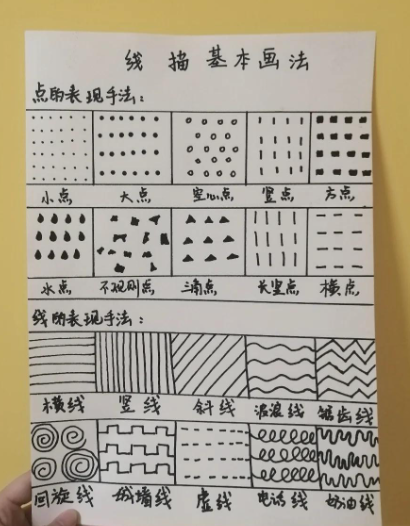 线 描 基本画法
点的表现手法：
小点 大点 空心点 竖点 方点
水点 不规则点 三角点 长竖点 横点
线的表现手法：
横线 竖线 斜线 波浪线 锯齿线
回旋线 城墙线 虚线 电话线 奶油线